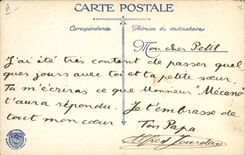 CARTE POSTALE
Correspondance
Adresse du destinataire
Mon cher Petit
J'ai été très content de passer quel
ques jours avec toi et ta petite sœur.
Tu m'écriras ce que Monsieur Mécano
t'aura répondu. Je t'embrasse de
tout mon cœur
Ton Papa
Alfred Jourdain